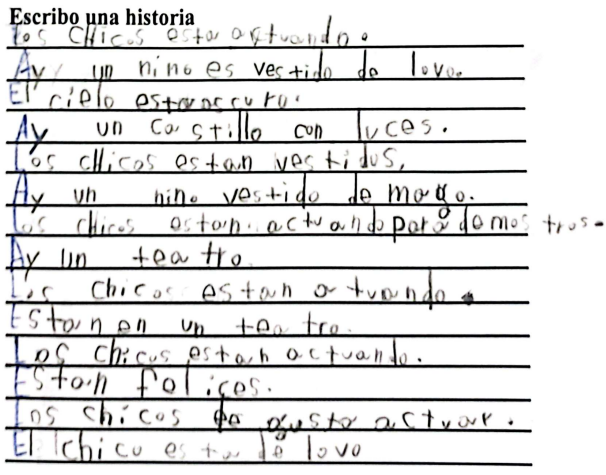 Escribo una historia
Los chicos esta actuando.
Ay un nino es vestido de lovo.
El cielo esta oscuro.
Ay un castillo con luces.
Los chicos estan vestidos,
Ay un nino vestido de mago.
Los chicos estan actuando para demos tros-
Ay un teatro
Los chicos estan atuando.
Estan en un teatro.
Los chicos estan actuando.
Estan falices.
Los chicos de agusta actuar.
El chico esta de lovo